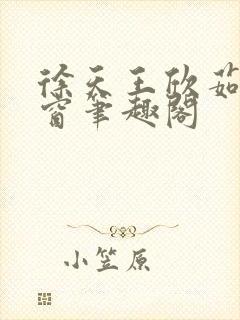 徐天王欣茹
窗笔趣阁
小笠原